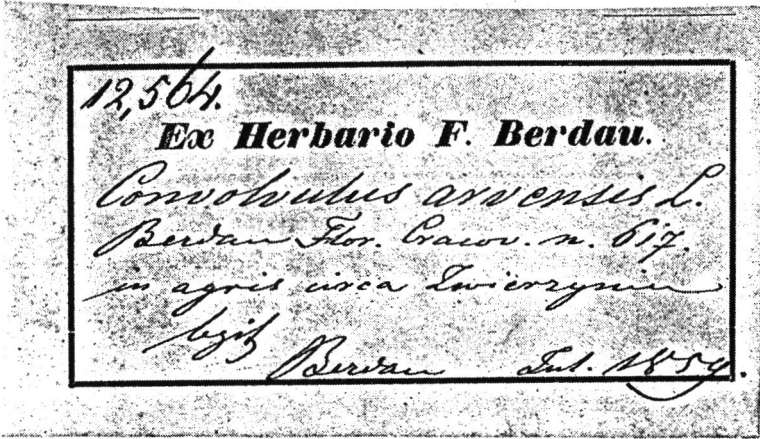 12,564.
Ex Herbario F. Berdau.
Convolvulus arvensis L.
Berdau Flor. Cracov. n. 617.
in agris circa Zwierzyniec
legit
Berdau Jul. 1859.